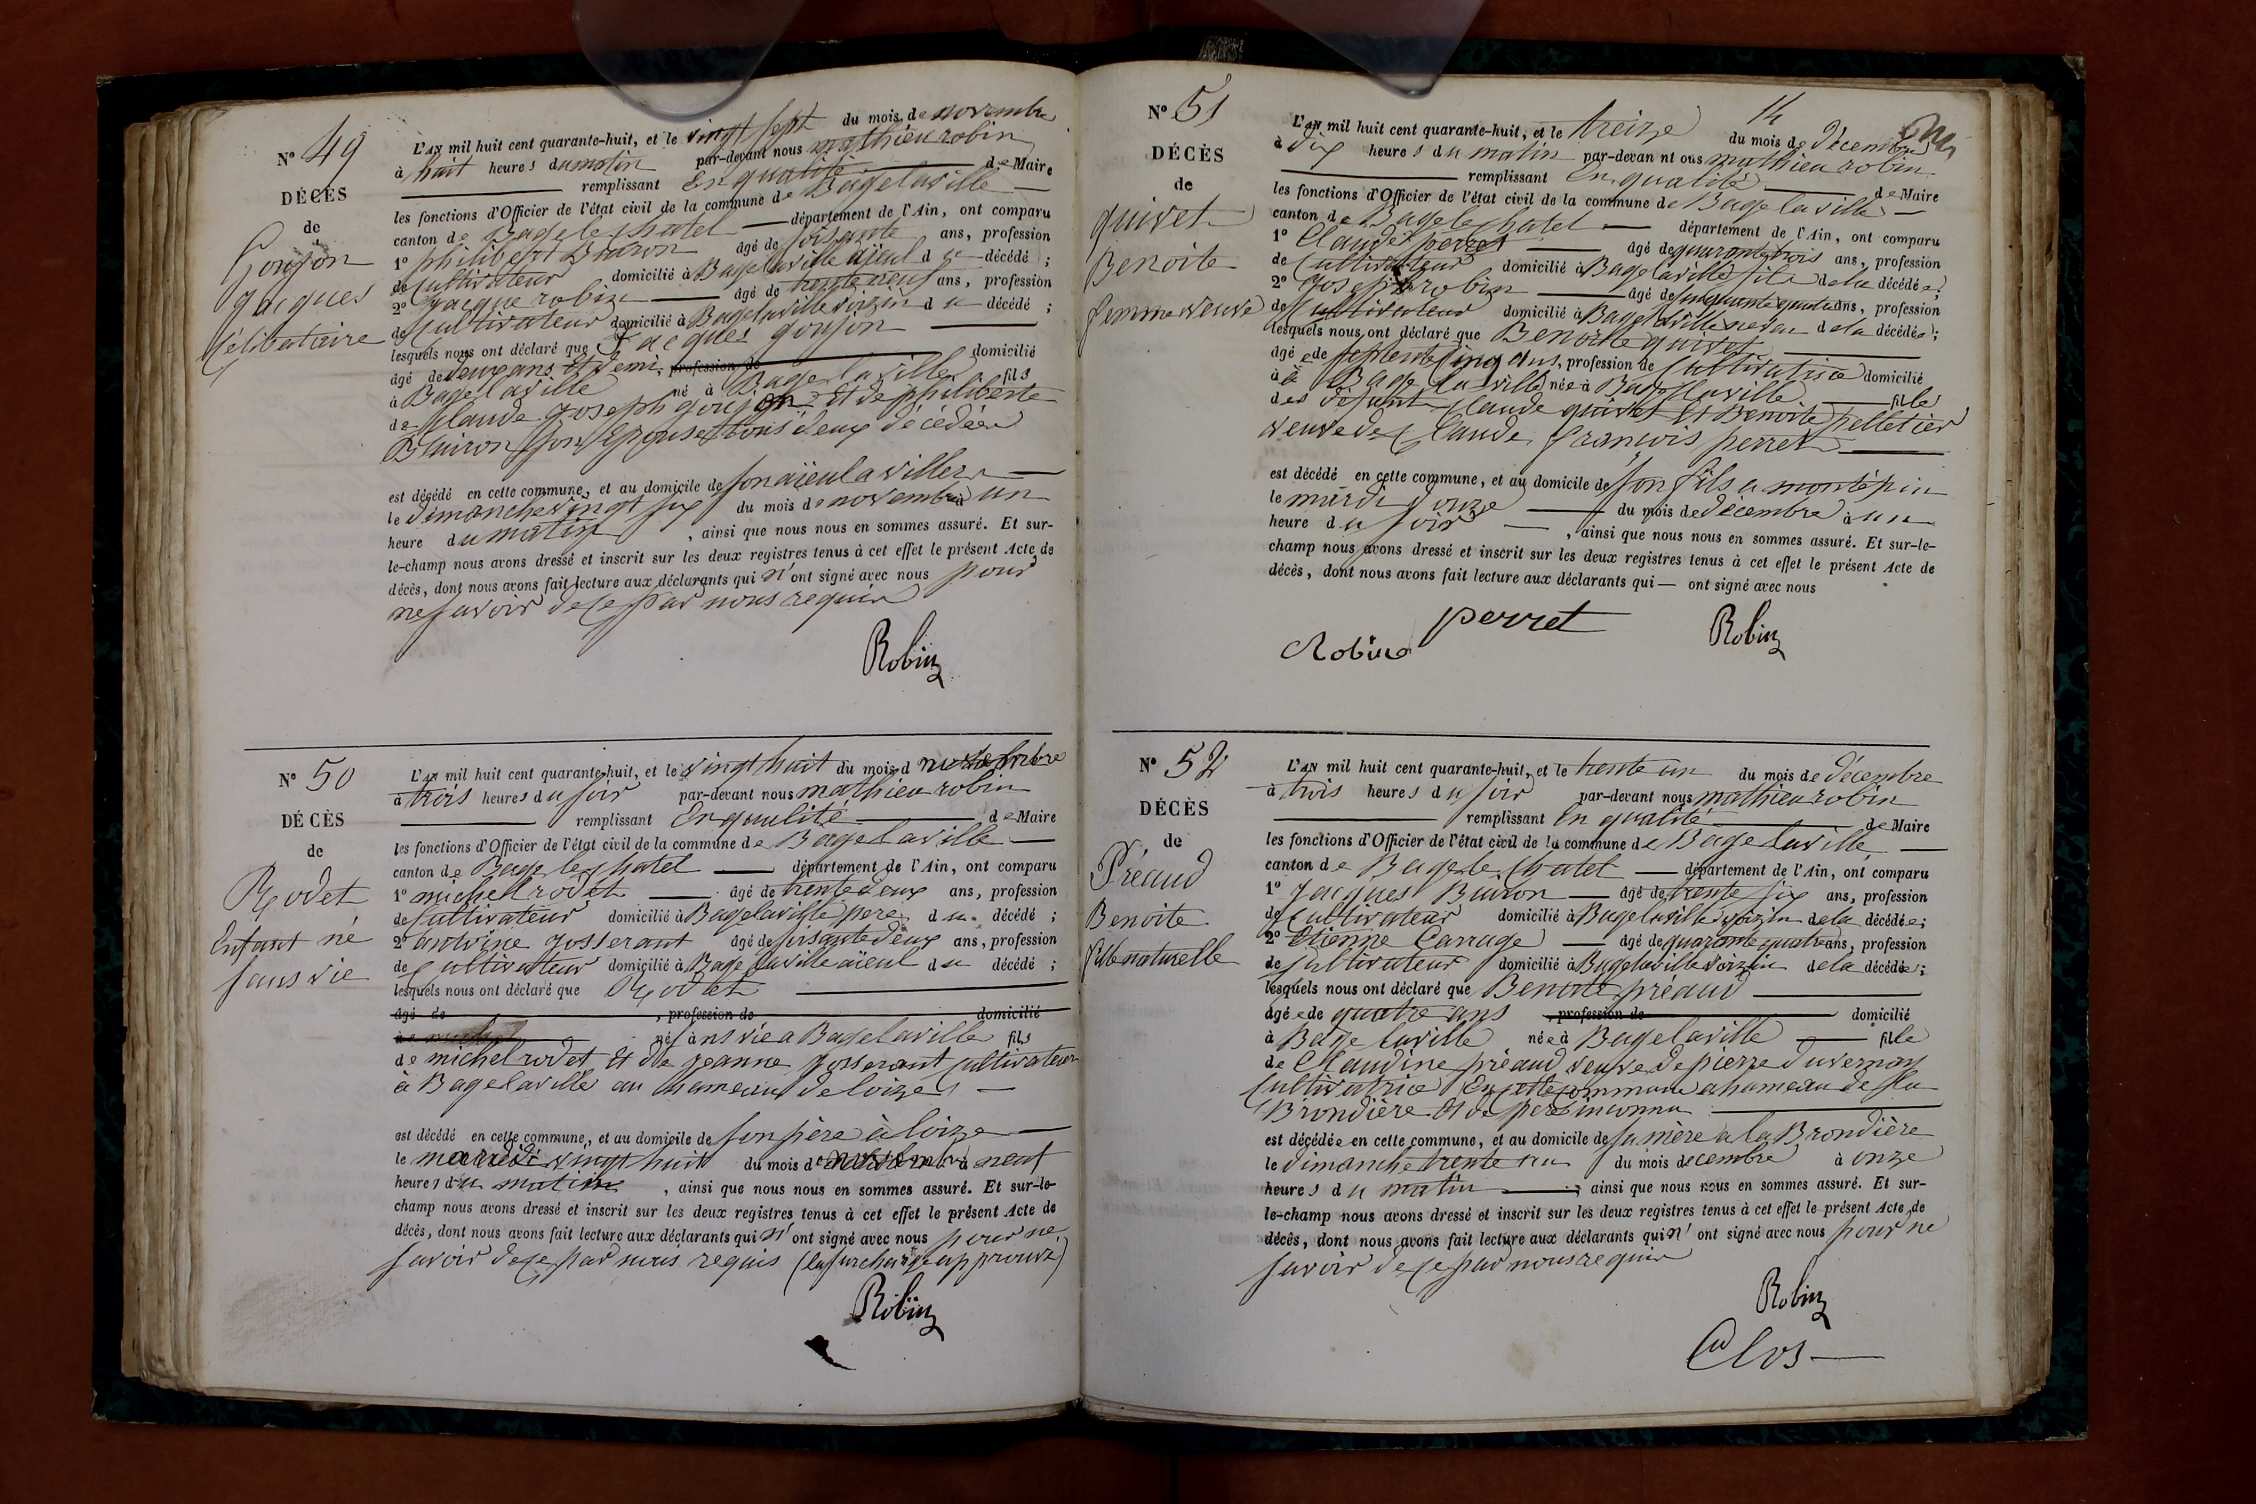 N° 49
DÉCÈS
de
Goujon
jacques
Célibataire
L'AN mil huit cent quarante-huit, et le vingt sept du mois de novembre
à huit heures du matin par-devant nous mathieu robin
remplissant En qualité de Maire
les fonctions d'Officier de l'état civil de la commune de Bagelaville
canton de Bagelechatel département de l'Ain, ont comparu
1° philibert Buiron agé de soisante ans, profession
de Cultivateur domicilié à Bagelaville aïeul du décédé ;
2° jacque robin agé de trente neuf ans, profession
de Cultivateur domicilié à Bagelaville voizin du décédé ;
lesquels nous ont déclaré que Jacques goujon
âgé de deux ans et demi, profession de domicilié
à Bagelaville né à Bagelaville fils
de Claude joseph goujon et de philiberte
Buiron son Epouse tous deux décédée
est décédé en cette commune, et au domicile de son aïeul a villeze
le dimanche vingt six du mois de novembre à un
heure du matin , ainsi que nous nous en sommes assuré. Et sur-
le-champ nous avons dressé et inscrit sur les deux registres tenus à cet effet le présent Acte de
décès, dont nous avons fait lecture aux déclarants qui n'ont signé avec nous pour
ne savoir de ce par nous requis
Robin
N° 50
DÉCÈS
de
Rodet
Enfant né
sans vie
L'AN mil huit cent quarante-huit, et le vingt huit du mois d novembre
à trois heures du soir par-devant nous mathieu robin
remplissant En qualité de Maire
les fonctions d'Officier de l'état civil de la commune de Bagelaville
canton de Bagelechatel département de l'Ain, ont comparu
1° michel rodet agé de trente deux ans, profession
de Cultivateur domicilié à Bagelaville pere du décédé ;
2° antoine josserant agé de soisante deux ans, profession
de Cultivateur domicilié à Bagelaville aïeul du décédé ;
lesquels nous ont déclaré que Rodet
âgé de , profession de domicilié
né sans vie a Bagelaville fils
de michel rodet et de jeanne josserant cultivateur
à Bagelaville au hameau de loize
est décédé en cette commune, et au domicile de son père à loize
le mardi vingt huit du mois de novembre à neuf
heures du matin , ainsi que nous nous en sommes assuré. Et sur-le-
champ nous avons dressé et inscrit sur les deux registres tenus à cet effet le présent Acte de
décès, dont nous avons fait lecture aux déclarants qui n'ont signé avec nous pour ne
savoir de ce par nous requis (la surcharge approuvé)
Robin
14
N° 51
DÉCÈS
de
quivet
Benoite
femme veuve
L'AN mil huit cent quarante-huit, et le treize du mois de décembre
à dix heures du matin par-devan nt ous mathieu robin
remplissant En qualité de Maire
les fonctions d'Officier de l'état civil de la commune de Bagelaville
canton de Bagelechatel département de l'Ain, ont comparu
1° Claude perret agé de quarante trois ans, profession
de Cultivateur domicilié à Bagelaville fils de la décédée ;
2° Joseph robin agé de cinquante quatre ans, profession
de Cultivateur domicilié à Bagelaville neveu de la décédée ;
lesquels nous ont déclaré que Benoite quivet
âgée de septente cinq ans, profession de Cultivatrice domicilié
à Bage la ville née à Bagelaville fille
des defunt Claude quivet et Benoite pelletier
veuve de Claude françois perret
est décédé en cette commune, et au domicile de son fils a montépin
le mardi douze du mois de décembre à un
heure du soir , ainsi que nous nous en sommes assuré. Et sur-le-
champ nous avons dressé et inscrit sur les deux registres tenus à cet effet le présent Acte de
décès, dont nous avons fait lecture aux déclarants qui — ont signé avec nous
perret
Robin
Robin
N° 52
DÉCÈS
de
Préaud
Benoite
fille naturelle
L'AN mil huit cent quarante-huit, et le trente un du mois de décembre
à trois heures du soir par-devant nous mathieu robin
remplissant En qualité de Maire
les fonctions d'Officier de l'état civil de la commune de Bagelaville
canton de Bagelechatel département de l'Ain, ont comparu
1° Jacques Buiron agé de trente six ans, profession
de Cultivateur domicilié à Bagelaville voizin de la décédée ;
2° Etienne Carrage agé de quarante quatre ans, profession
de Cultivateur domicilié à Bagelaville voizin de la décédée ;
lesquels nous ont déclaré que Benoite préaud
âgée de quatre ans , profession de domicilié
à Bagelaville née à Bagelaville fille
de Claudine préaud veuve de pierre duvernay
Cultivatrice En cette commune a hameau de la
Brondière et de pere inconnu
est décédée en cette commune, et au domicile de sa mère a la Brondière
le dimanche trente un du mois decembre à onze
heures du matin ; ainsi que nous nous en sommes assuré. Et sur-
le-champ nous avons dressé et inscrit sur les deux registres tenus à cet effet le présent Acte de
décès, dont nous avons fait lecture aux déclarants qui n'ont signé avec nous pour ne
savoir de ce par nous requis
Robin
Clos